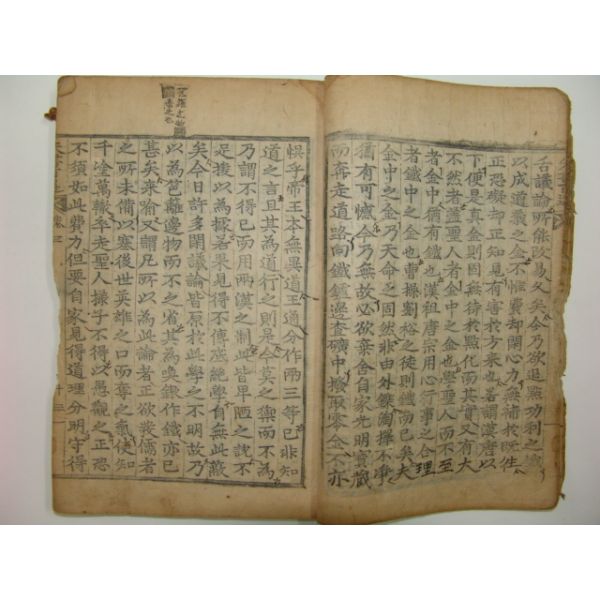 舌議論所能改易久矣今乃欲追點功利之鐵
以成道義之金不惟費却閑心力無補於既往
正恐礙却正知見有害於方來也若謂漢唐以
下便是真金則固無待於點化而其實又有大
不然者蓋聖人者金中之金也學聖人而不至
者金中猶有鐵也漢祖唐宗用心行事之合理
者鐵中之金也曹操劉裕之徒則鐵而已矣夫
金中之金乃天命之固然非由外鑠淘擇不淨
猶有可憾今乃無故必欲棄舍自家光明寶藏
而奔走道路向鐵鑪邊查礦中撥取零金不亦
悞乎帝王本無異道王通分作兩三等已非知
道之言且其為道行之則是今莫之禦而不為
乃謂不得已而用兩漢之制此皆卑陋之說不
足援以為據若果見得不傳底絕學自無此蔽
矣今日許多閑議論皆原於此學之不明故乃
以為笆籬邊物而不之省其為喚銀作鐵亦已
甚矣來喻又謂凡所以為此論者正欲發儒者
之所未備以塞後世英雄之口而奪之氣使知
千塗萬轍卒走聖人樣子不得以愚觀之正恐
不須如此費力但要自家見得道理分明守得